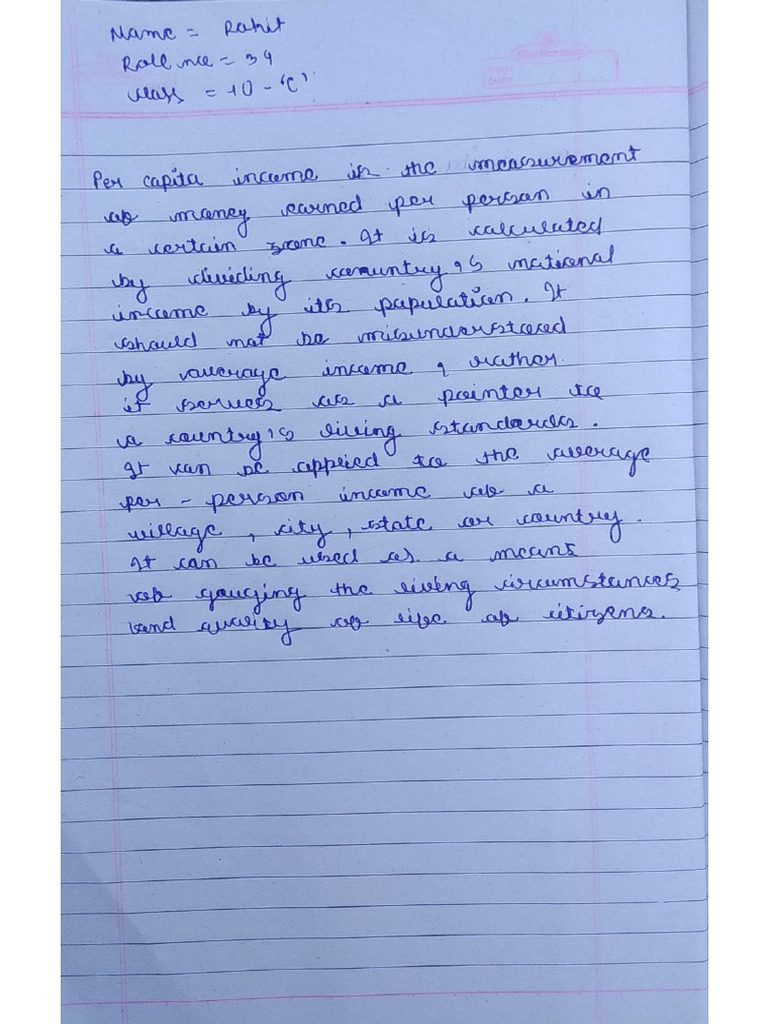 Name = Rohit
Roll no = 34
Class = 10 - 'C'
Per capita income is the measurement
of money earned per person in
a certain zone. It is calculated
by dividing country's national
income by its population. It
should not be misunderstood
by average income, rather
it serves as a pointer to
a country's living standards.
It can be applied to the average
per - person income of a
village, city, state or country.
It can be used as a means
of gauging the living circumstances
and quality of life of citizens.